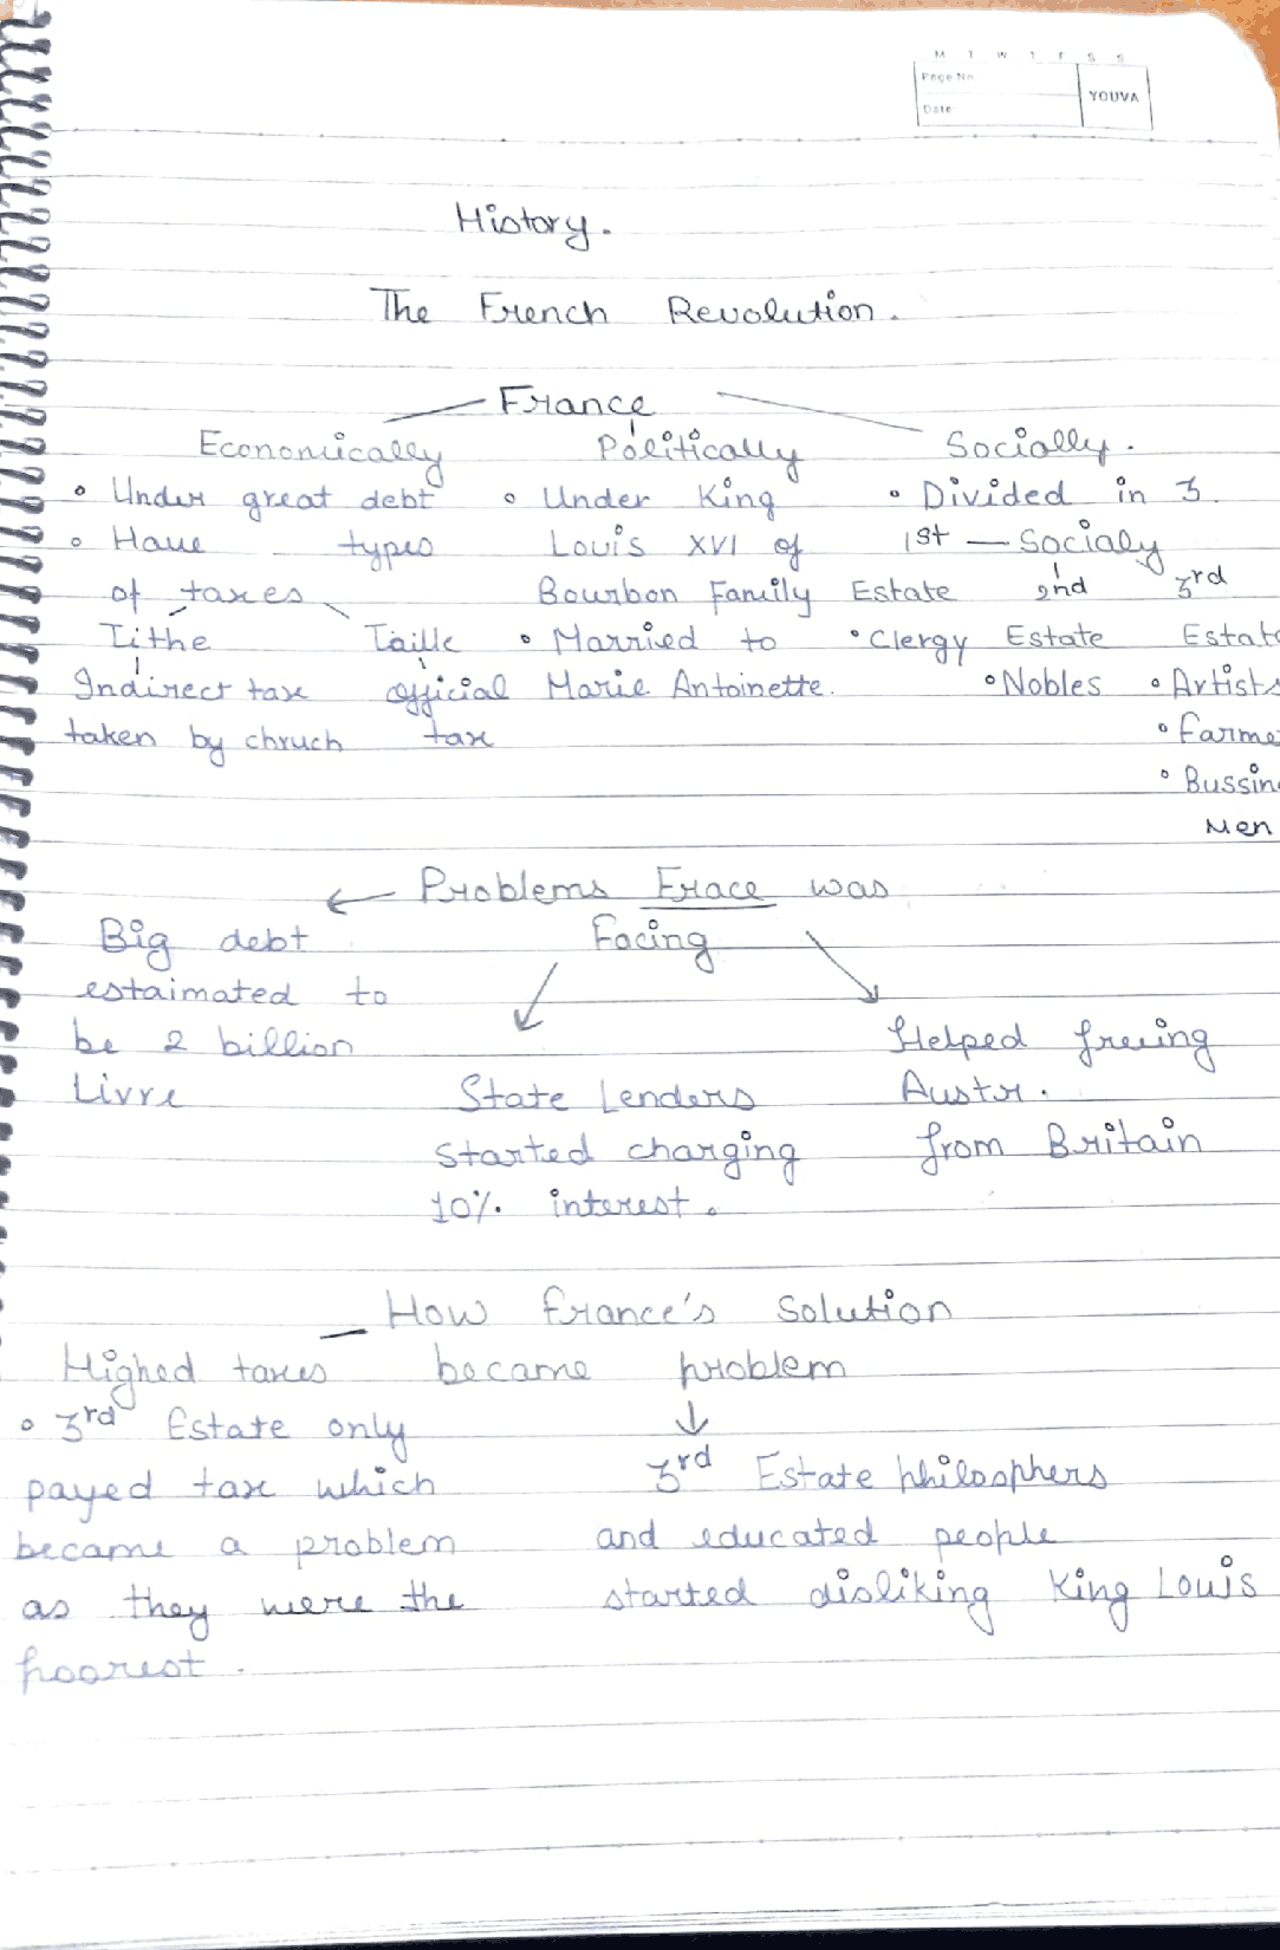 M T W T F S S
Page No
YOUVA
Date
History.
The French Revolution.
France
Economically Politically Socially.
• Under great debt • Under King • Divided in 3.
• Have types Louis XVI of 1st — Socialy
of taxes Bourbon Family Estate 2nd 3rd
Tithe Taille • Married to • Clergy Estate Estate
Indirect tax official Marie Antoinette. • Nobles • Artists
taken by chruch tax • Farme
• Bussin
Men
Problems Frace was
Big debt Facing
estaimated to
be 2 billion Helped freeing
Livre State Lenders Austr.
started charging from Britain
10% interest.
How France's Solution
Highed taxes became problem
• 3rd Estate only
payed tax which 3rd Estate philosphers
became a problem and educated people
as they were the started disliking King Louis
poorest.